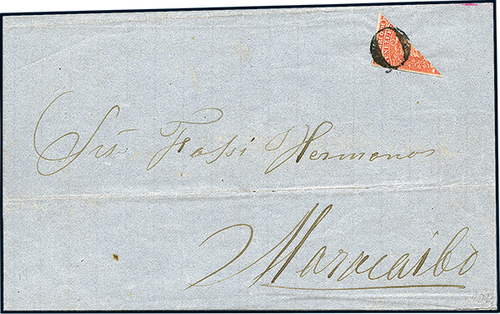 Srs Fossi Hermanos
Maracaibo